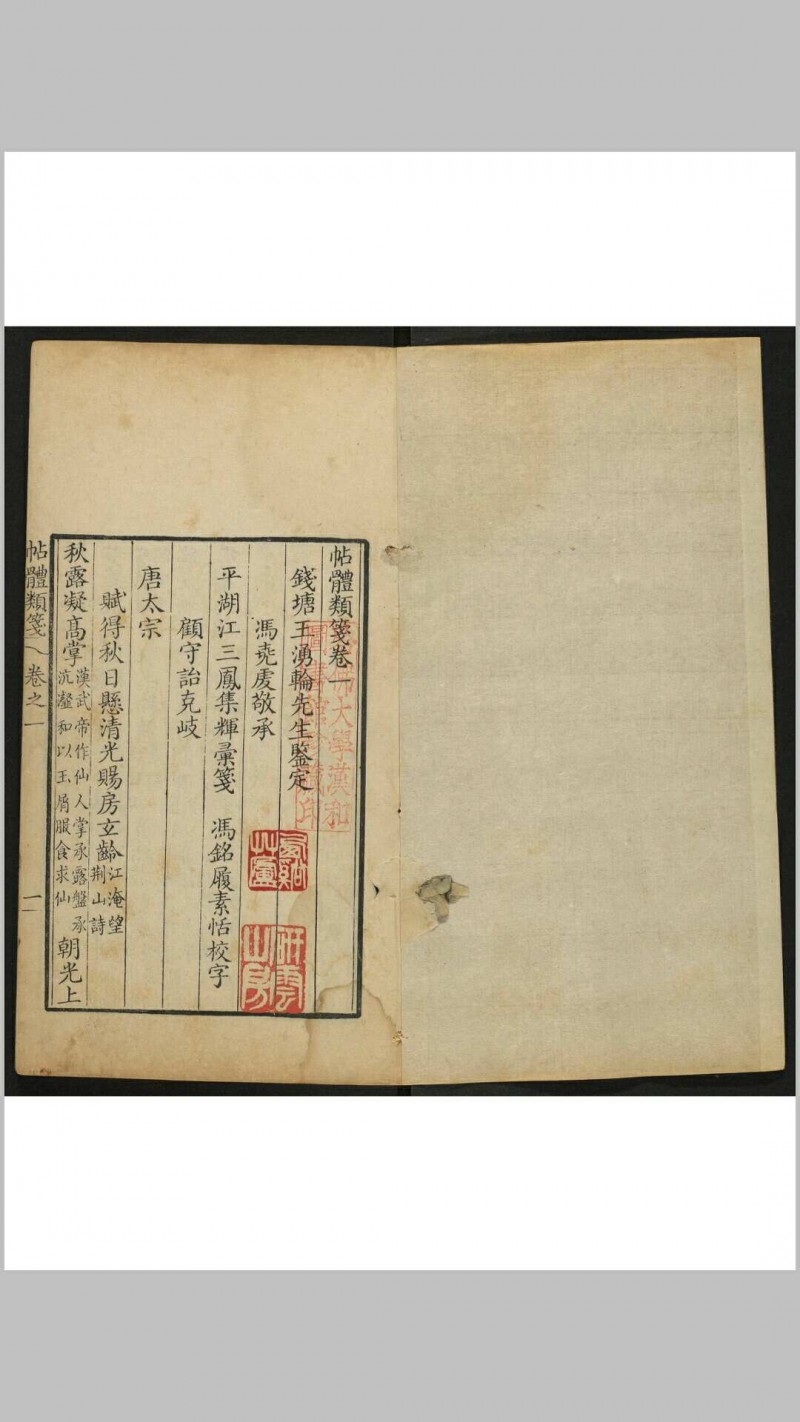 帖體類箋卷一
錢塘王湧輪先生鑒定
馮堯處敬承
平湖江三鳳集輝彙箋 馮銘履素恬校字
顧守詒克岐
唐太宗
賦得秋日懸清光賜房玄齡江淹望荆山詩
秋露凝高掌漢武帝作仙人掌承露盤承沆瀣和以玉屑服食求仙朝光上
帖體類箋 卷之一 一
佛大學漢和
圖書館珍藏印
研雲山房